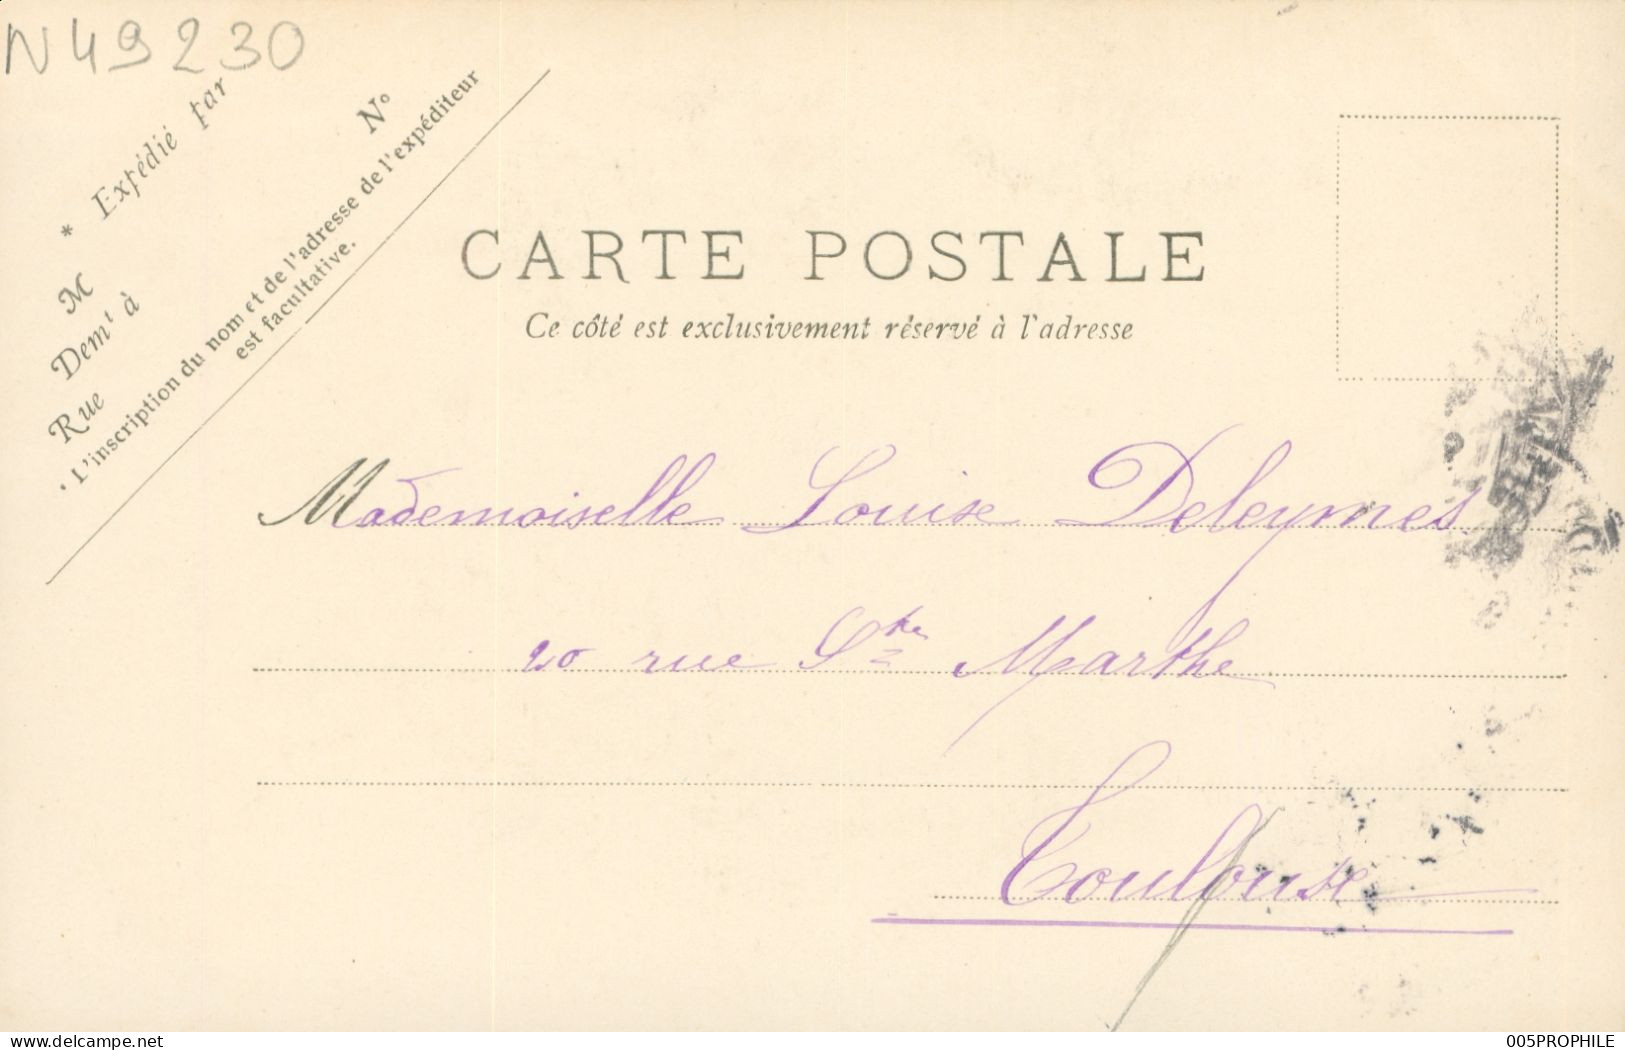 N 49230
* Expédié par
M
Dem! à
Rue
N°
* L'inscription du nom et de l'adresse de l'expéditeur
est facultative.
CARTE POSTALE
Ce côté est exclusivement réservé à l'adresse
Mademoiselle Louise Deleymes
20 rue Ste Marthe
Toulouse
delcampe.net
005PROPHILE